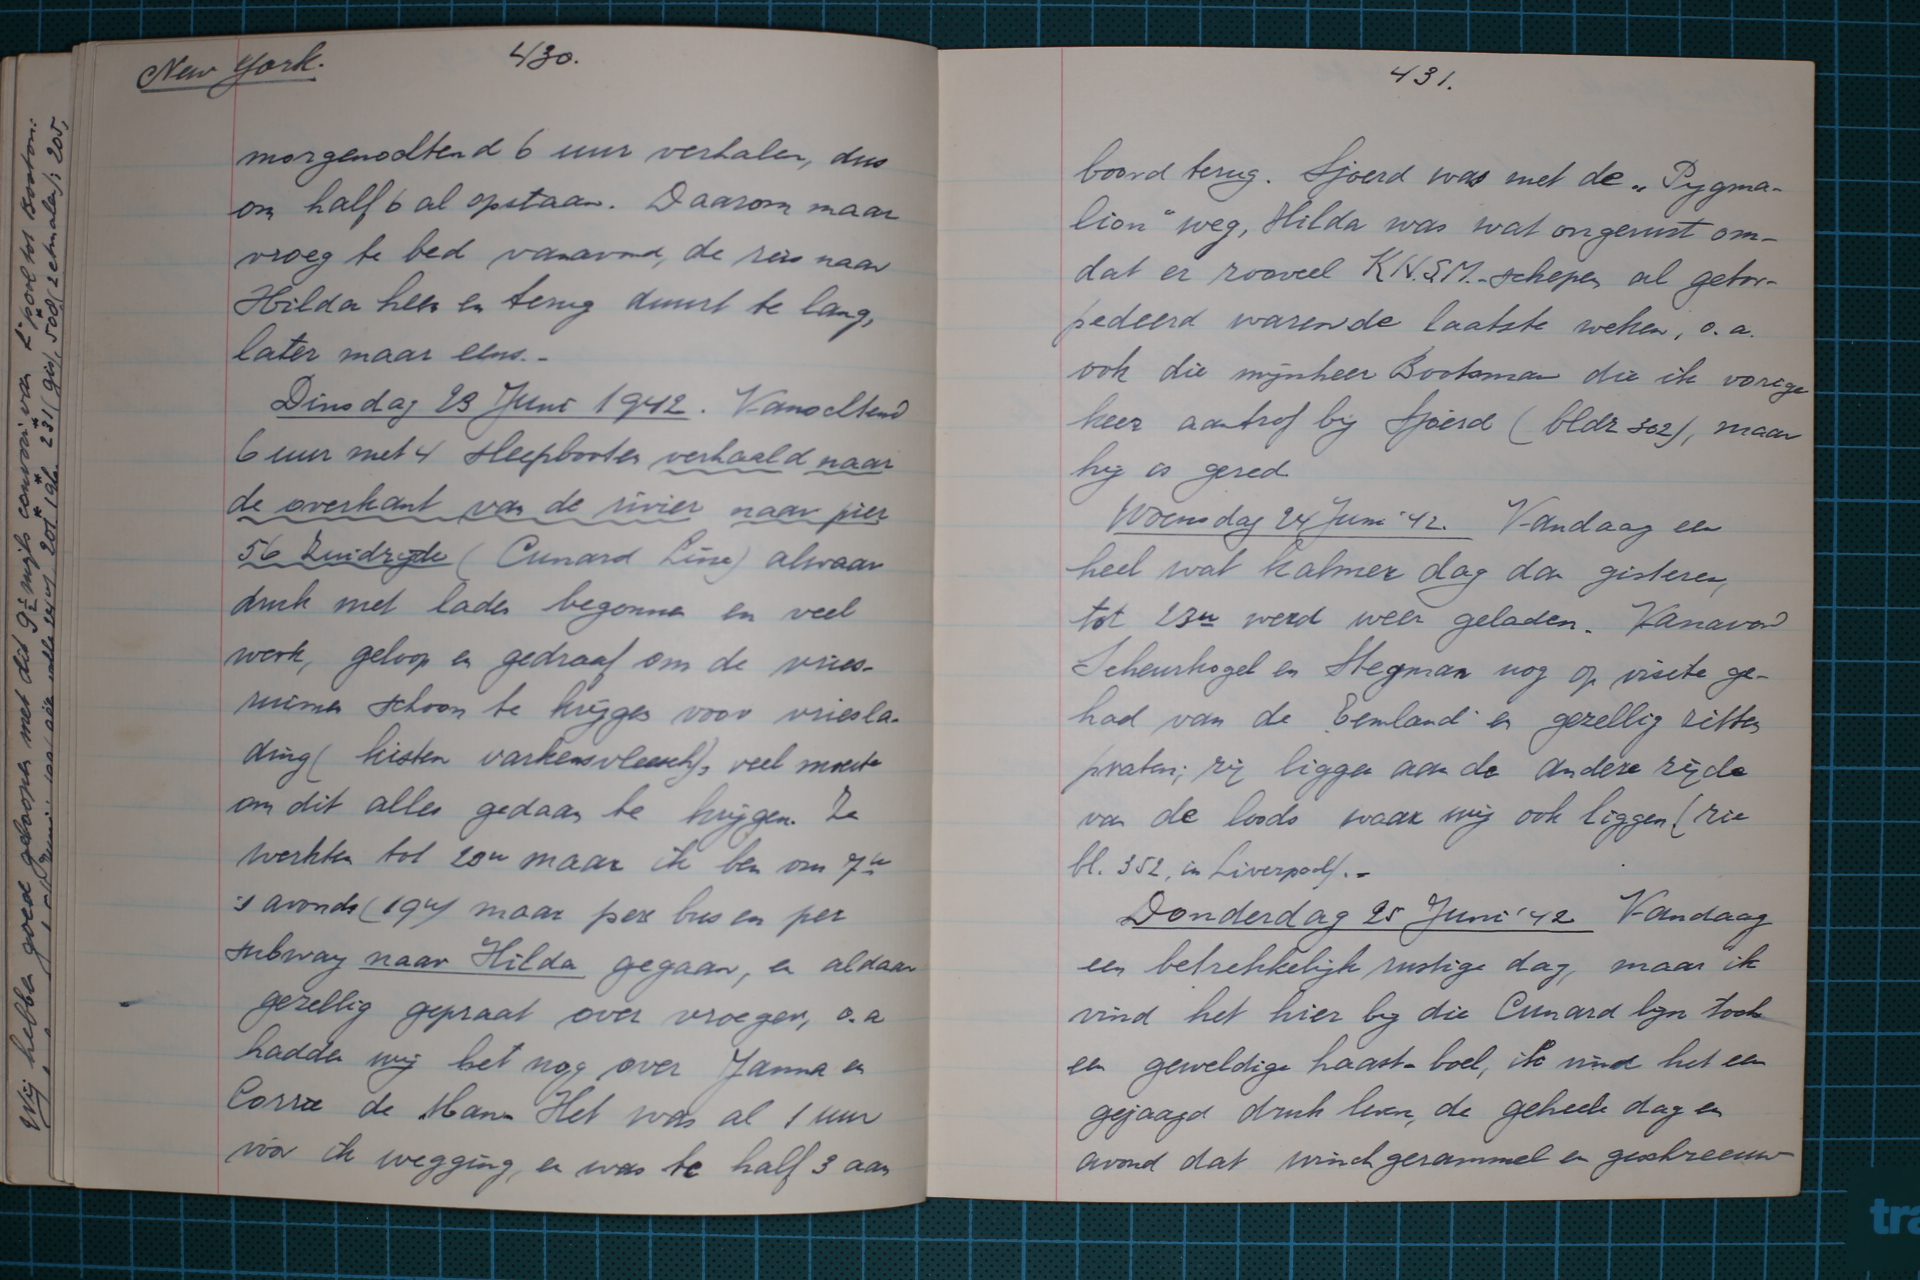 New York.
430.
morgenochtend 6 uur verhalen, dus
om half 6 al opstaan. Daarom maar
vroeg te bed vanavond, de reis naar
Hilda heen en terug duurt te lang,
later maar eens.-
Dinsdag 23 Juni 1942. Vanochtend
6 uur met 4 sleepbooten verhaald naar
de overkant van de rivier naar pier
56 Zuidzijde (Cunard Line) alwaar
druk met laden begonnen en veel
werk, geloop en gedraaf om de vries-
ruimen schoon te krijgen voor vriesla-
ding (kisten varkensvleesch), veel moeite
om dit alles gedaan te krijgen. Ze
werkten tot 20u maar ik ben om 7u
's avonds (19u) maar per bus en per
subway naar Hilda gegaan, en aldaar
gezellig gepraat over vroeger, o.a
hadden wij het nog over Janna en
Corrie de Haan Het was al 1 uur
voor ik wegging, en was te half 3 aan
431.
boord terug. Sjoerd was met de „Pygma-
lion" weg, Hilda was wat ongerust om-
dat er zooveel K.N.S.M.-schepen al getor-
pedeerd waren de laatste weken, o.a.
ook die mijnheer Bootsman die ik vorige
keer aantrof bij Sjoerd (bldz 302), maar
hij is gered
Woensdag 24 Juni '42. Vandaag een
heel wat kalmer dag dan gisteren,
tot 23u werd weer geladen. Vanavond
Scheurkogel en Stegman nog op visite ge-
had van de "Eemland" en gezellig zitten
praten; zij liggen aan de andere zijde
van de loods waar wij ook liggen (zie
bl. 352, in Liverpool).-
Donderdag 25 Juni '42 Vandaag
een betrekkelijk rustige dag, maar ik
vind het hier bij die Cunard lijn toch
een geweldige haast-boel, ik vind het een
gejaagd druk leven, de geheele dag en
avond dat winchgerammel en geschreeuw
Wij hebben goed geloopen met die 9½ mijls convooi van L'pool tot Boston:
tra